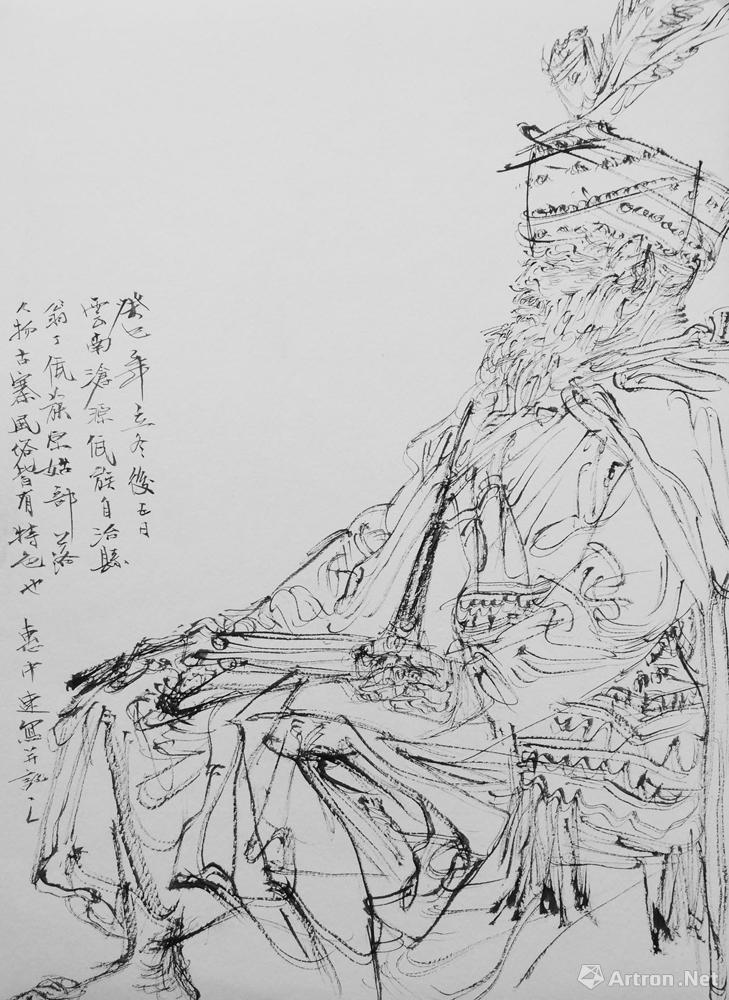 癸巳年立冬後五日
雲南滄源佤族自治縣
翁丁佤族原始部落
人物古寨風俗皆有特色也 惠中速寫并記之
Artron.Net